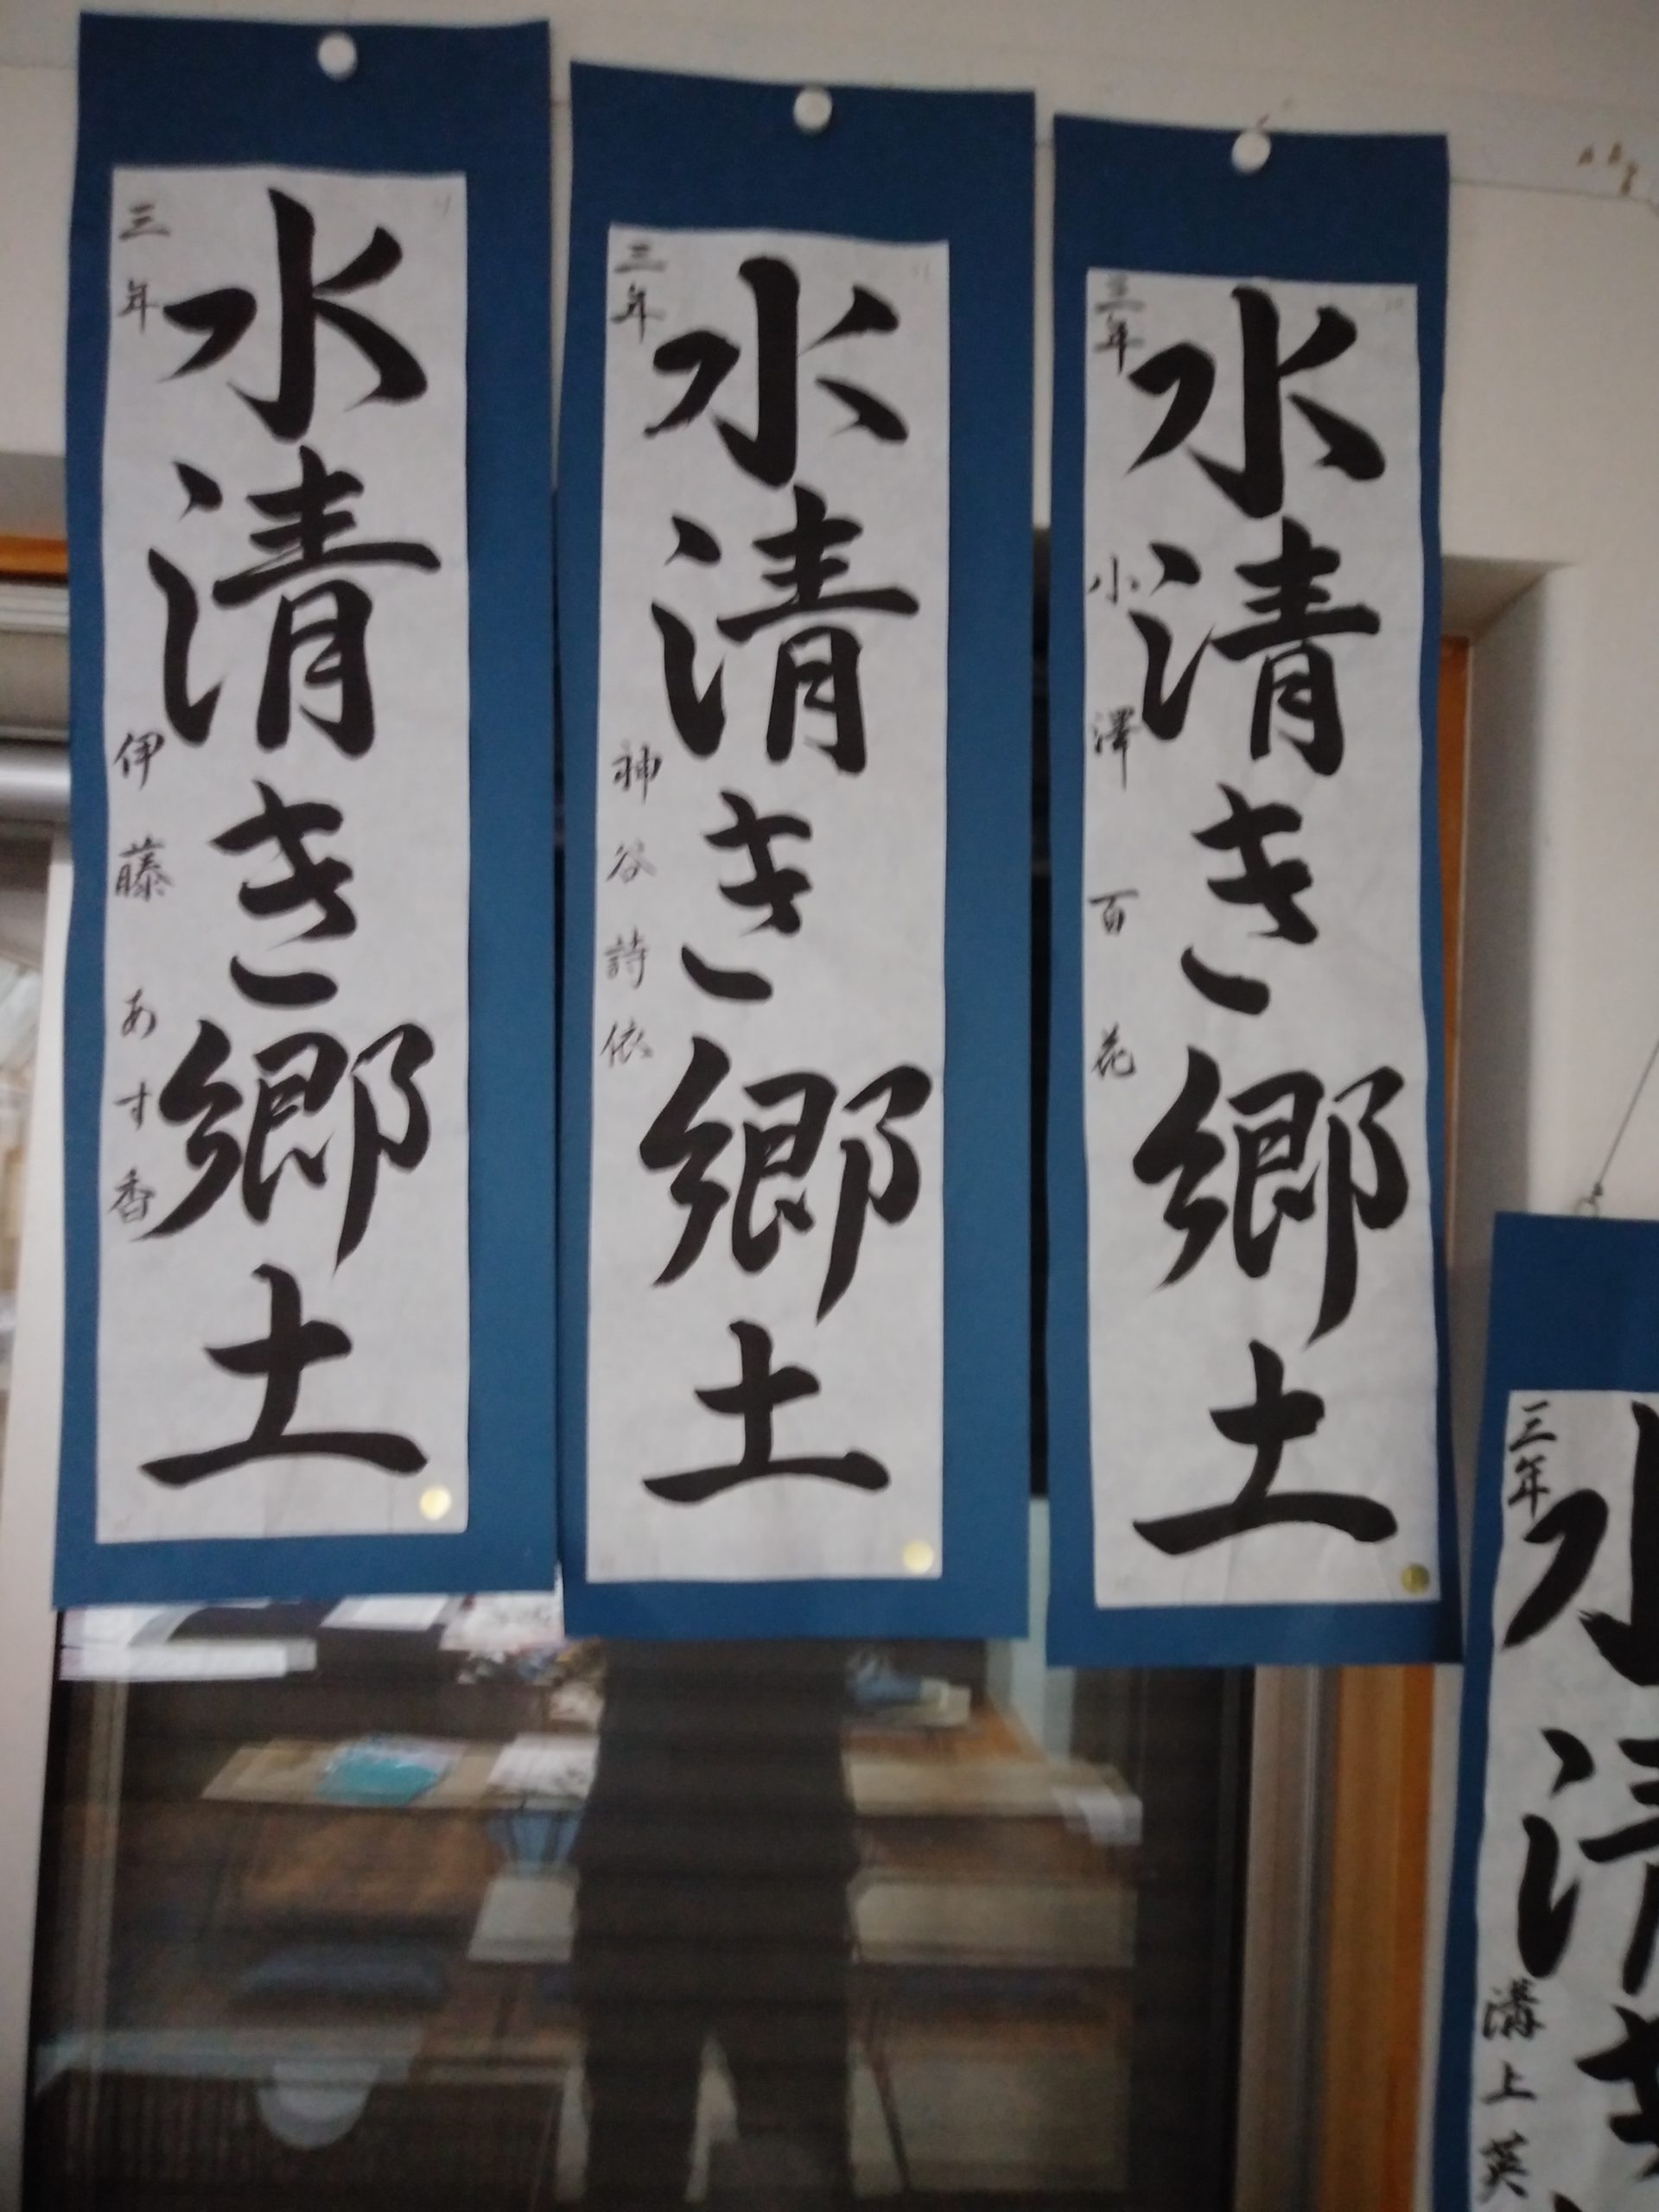 水清き郷土
三年 伊藤あす香
水清き郷土
三年 神谷詩依
水清き郷土
三年 小澤百花
水清き
三年 溝上英